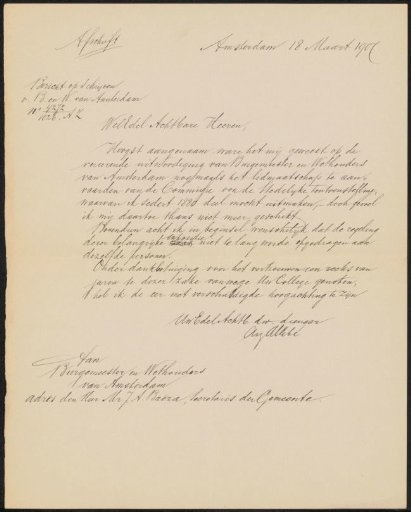 Afschrift
Amsterdam 18 Maart 1907
Bericht op schrijven
v. B. en W. van Amsterdam
No A.Z.
WelEdel Achtbare Heeren,
Hoogst aangenaam ware het mij geweest op de
vereerende uitnoodiging van Burgemeester en Wethouders
van Amsterdam nogmaals het lidmaatschap te aan-
vaarden van de Commissie van de Stedelijke Tentoonstelling,
waarvan ik sedert deel mocht uitmaken, doch gevoel
ik mij daartoe thans niet meer geschikt.
Bovendien acht ik in beginsel wenschelijk dat de regeling
dezer belangrijke niet te lang worde opgedragen aan
dezelfde personen.
Onder dankbetuiging voor het vertrouwen een reeks van
jaren te dezer zake vanwege Uw College genoten,
heb ik de eer met verschuldigde hoogachting te zijn
UwEdel Achtb. dw. dienaar
Aug Allebé
Aan
Burgemeester en Wethouders
van Amsterdam
adres den Heer Mr J. A. Secretaris der Gemeente.